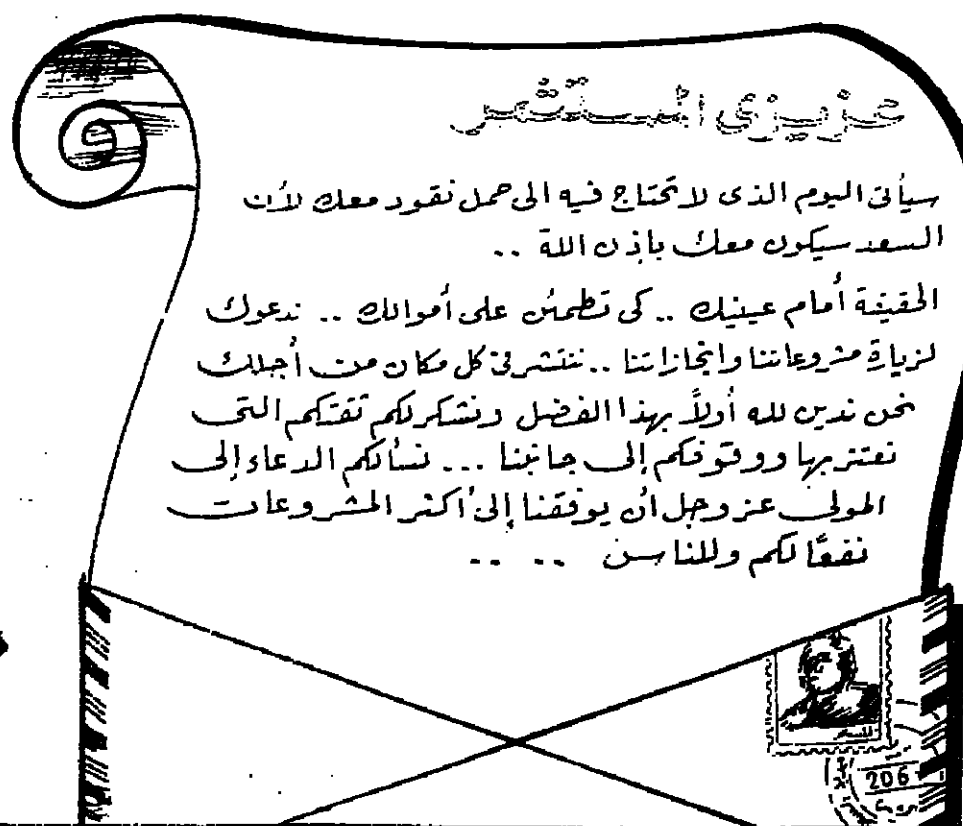 عزيزى المستثمر
سيأتى اليوم الذى لا تحتاج فيه الى حمل نقود معك لأن
السعد سيكون معك باذن اللة ..
الحقيقة أمام عينيك .. كى تطمئن على أموالك .. ندعوك
لزيارة مشروعاتنا وانجازاتنا .. ننتشر فى كل مكان من أجلك
نحن ندين لله أولاً بهذا الفضل ونشكر لكم ثقتكم التى
نعتز بها ووقوفكم إلى جانبنا ... نسألكم الدعاء إلى
المولى عز وجل أن يوفقنا إلى أكثر المشروعات
نفعًا لكم وللناس .. ..
206